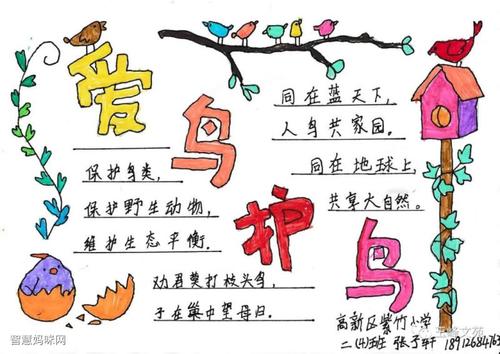 爱鸟护鸟
保护鸟类,
保护野生动物,
维护生态平衡.
劝君莫打枝头鸟,
子在巢中望母归.
同在蓝天下,
人鸟共家园.
同在地球上,
共享大自然.
高新区紫竹小学
智慧妈咪网